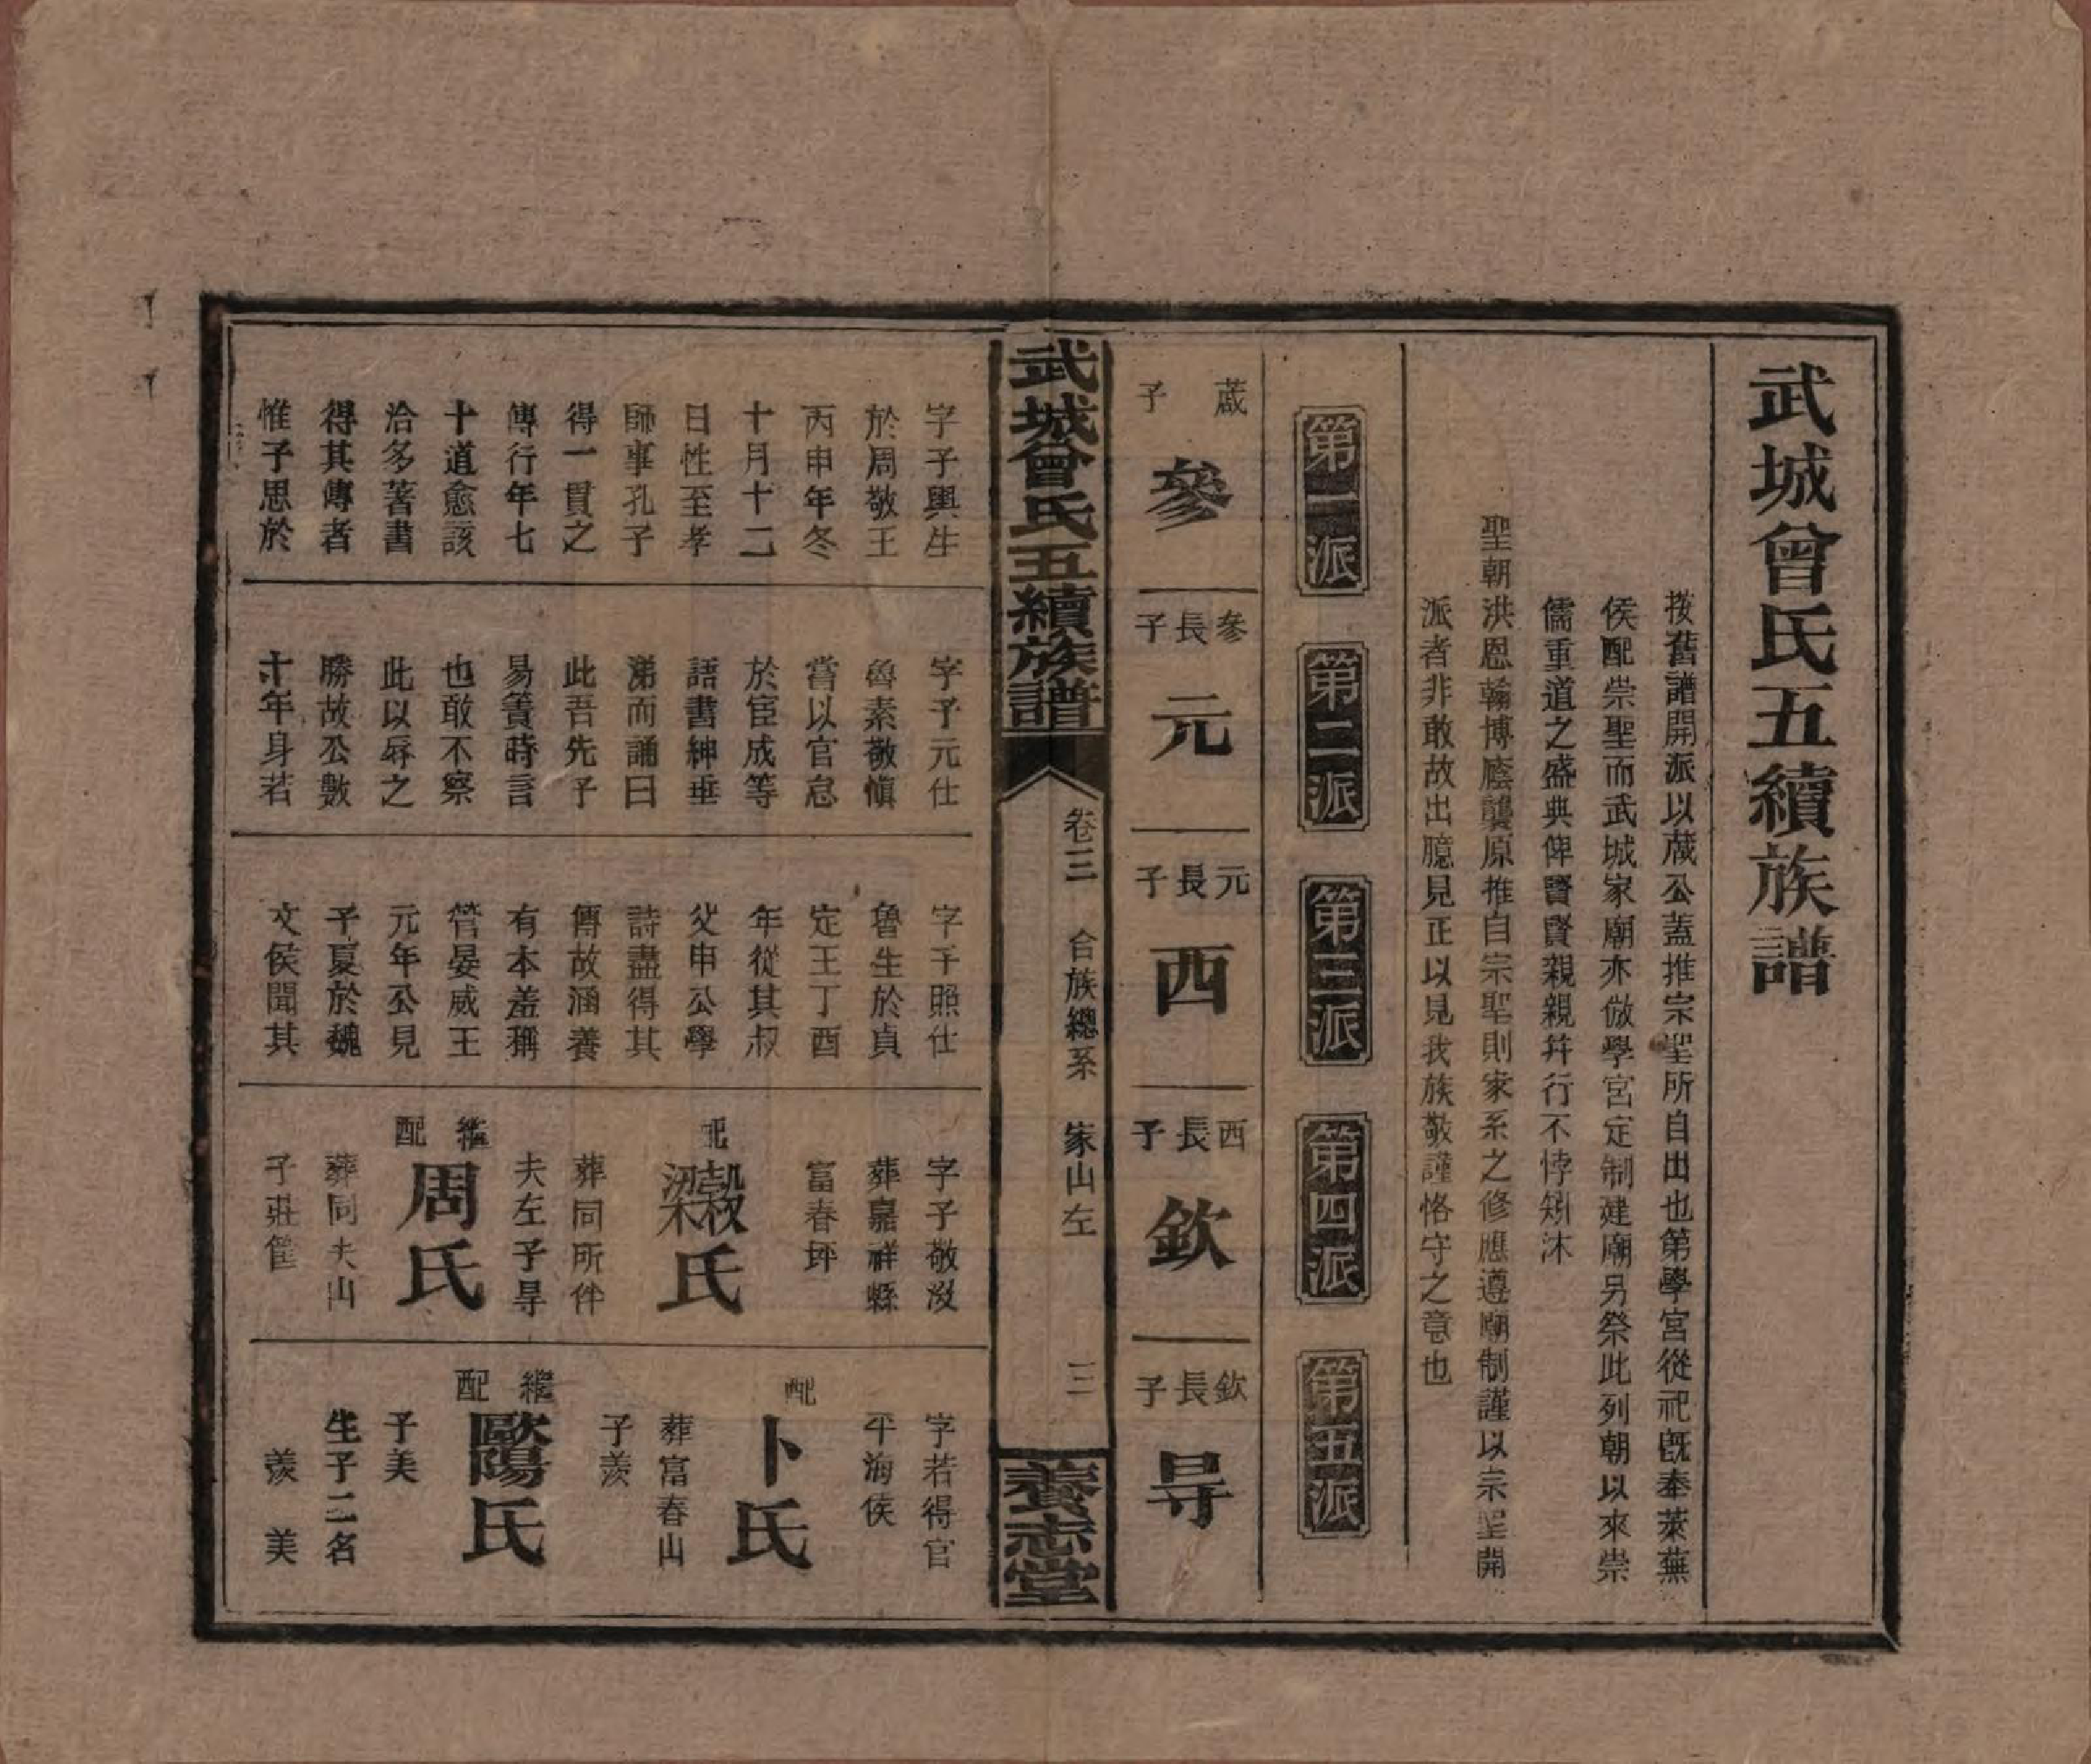 武城曾氏五續族譜
按舊譜開派以蒧公蓋推宗聖所自出也第學宮從祀旣奉萊蕪
侯配崇聖而武城家廟亦倣學宮定制建廟另祭此列朝以來崇
儒重道之盛典俾賢賢親親幷行不悖矧沐
聖朝洪恩翰博廕襲原推自宗聖則家系之修應遵廟制謹以宗聖開
派者非敢故出臆見正以見我族敬謹恪守之意也
第一派
第二派
第三派
第四派
第五派
蒧子
參
參長子
元
元長子
西
西長子
欽
欽長子
㝵
武城曾氏五續族譜
卷三 合族總系 家山左 三
養志堂
字子輿生
於周敬王
丙申年冬
十月十二
日性至孝
師事孔子
得一貫之
傳行年七
十道愈該
洽多著書
得其傳者
惟子思於
字子元仕
魯素敬愼
嘗以官怠
於宦成等
語書紳垂
涕而誦曰
此吾先子
易簀時言
也敢不察
此以辱之
勝故公數
十年身若
字子照仕
魯生於貞
定王丁酉
年從其叔
父申公學
詩盡得其
傳故涵養
有本羞稱
管晏威王
元年公見
子夏於魏
文侯聞其
字子敬歿
葬嘉祥縣
富春坪
配
穀梁氏
葬同所伴
夫左子㝵
繼配
周氏
葬同夫山
子莊筐
字若得官
平海侯
配
卜氏
葬富春山
子羨
繼配
歐陽氏
子美
生子二名
羨 美